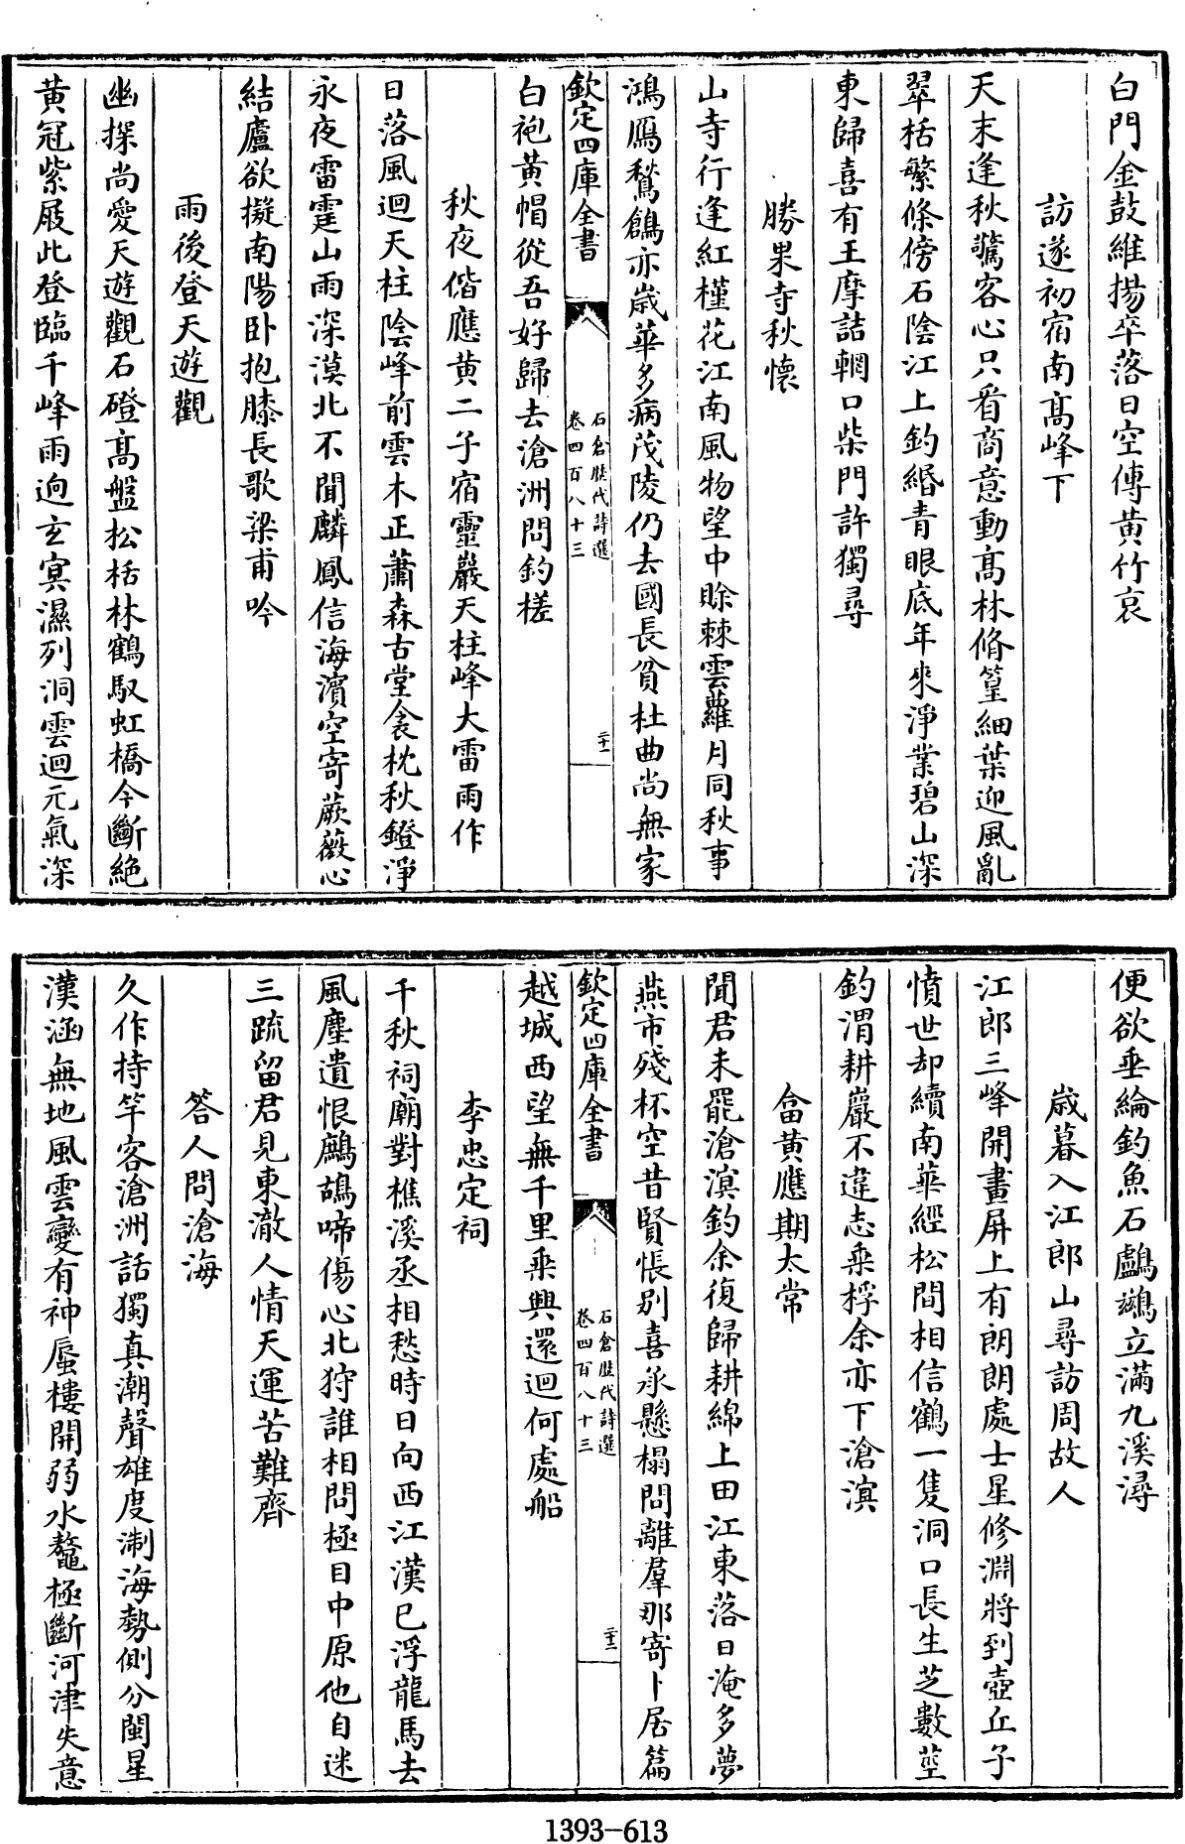 白門金鼓維揚卒落日空傳黄竹哀
訪遂初宿南髙峰下
天末逢秋驚客心只看商意動髙林脩篁細葉迎風亂
翠栝繁條傍石陰江上釣緡青眼底年來淨業碧山深
東歸喜有王摩詰輞口柴門許獨尋
勝果寺秋懐
山寺行逢紅槿花江南風物望中賖棘雲蘿月同秋事
鴻鴈鶖鶬亦歳華多病茂陵仍去國長貧杜曲尚無家
欽定四庫全書
石倉歴代詩選
卷四百八十三
二十一
白袍黄帽從吾好歸去滄洲問釣槎
秋夜偕應黄二子宿靈巖天柱峰大雷雨作
日落風迴天柱陰峰前雲木正蕭森古堂衾枕秋鐙淨
永夜雷霆山雨深漠北不聞麟鳳信海濵空寄蕨薇心
結廬欲擬南陽卧抱膝長歌梁甫吟
雨後登天遊觀
幽探尚愛天遊觀石磴髙盤松栝林鶴馭虹橋今斷絶
黄冠紫屐此登臨千峰雨逈玄冥濕列洞雲迴元氣深
便欲垂綸釣魚石鸕鷀立滿九溪潯
歳暮入江郎山尋訪周故人
江郎三峰開畫屏上有朗朗處士星修淵將到壺丘子
憤世却續南華經松間相信鶴一隻洞口長生芝數莖
釣渭耕巖不違志乘桴余亦下滄溟
畣黄應期太常
聞君未罷滄溟釣余復歸耕綿上田江東落日淹多夢
燕市殘杯空昔賢悵别喜承懸榻問離羣那寄卜居篇
欽定四庫全書
石倉歴代詩選
卷四百八十三
二十二
越城西望無千里乘興還迴何處船
李忠定祠
千秋祠廟對樵溪丞相愁時日向西江漢已浮龍馬去
風塵遺恨鷓鴣啼傷心北狩誰相問極目中原他自迷
三疏留君見東澈人情天運苦難齊
答人問滄海
久作持竿客滄洲話獨真潮聲雄度淛海勢側分閩星
漢涵無地風雲變有神蜃樓開弱水鼇極斷河津失意
1393-613